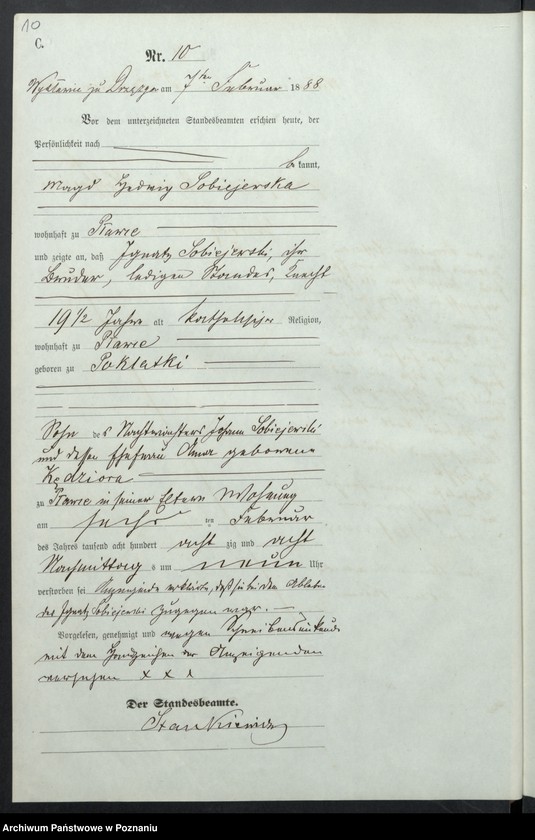 10
C.
Nr. 10
zu am 7ten Februar 1888
Vor dem unterzeichneten Standesbeamten erschien heute, der
Persönlichkeit nach
bekannt,
Magd Hedwig Sobiejerska
wohnhaft zu
und zeigte an, daß Ignatz Sobiejerski, ihr
Bruder, ledigen Standes, Knecht
19 1/2 Jahre alt katholischer Religion,
wohnhaft zu
geboren zu Poklatki
Sohn des Nachtwächters Johann Sobiejerski
und dessen Ehefrau Anna geborene
Kędziora
zu in seiner Eltern Wohnung
am sechsten Februar
des Jahres tausend acht hundert achtzig und acht
Nachmittags um neun Uhr
verstorben sei daß sie bei dem Ableben
des Ignatz Sobiejerski zugegen war.
Vorgelesen, genehmigt und wegen Schreibensunkunde
mit dem Handzeichen der Anzeigenden
versehen x x x
Der Standesbeamte.
Stankiewicz
Archiwum Państwowe w Poznaniu